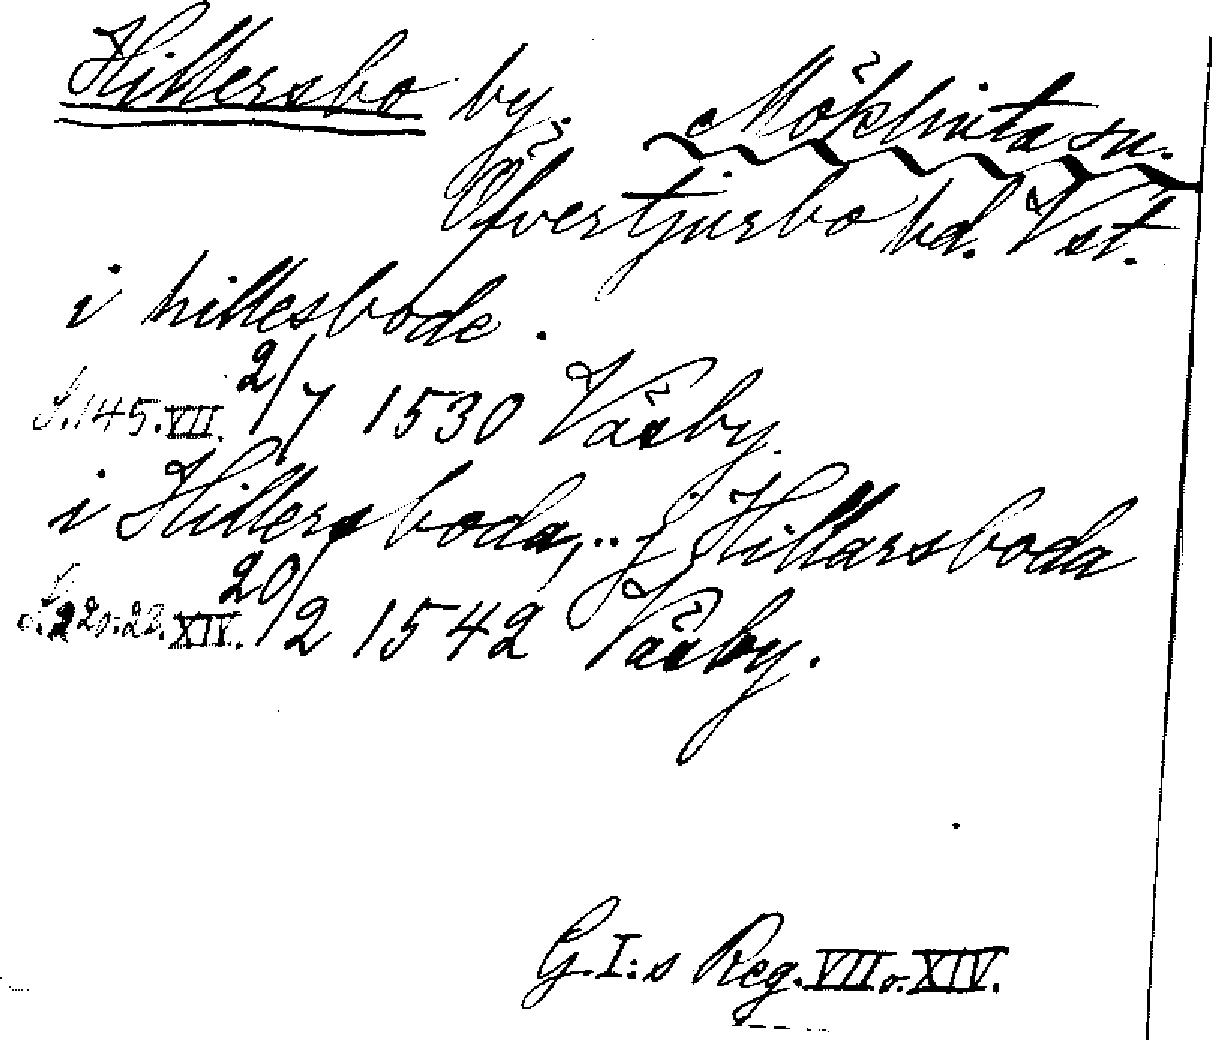 Hillersbo by. Möklinta sn.
Öfvertjurbo hd. Vst.
i hillesbode.
S.145.VII. 2/7 1530 Väsby.
i Hillersboda, .. j Hillarsboda
S. 220.22. XIV. 20/2 1542 Väsby.
G.I:s Reg. VII o. XIV.